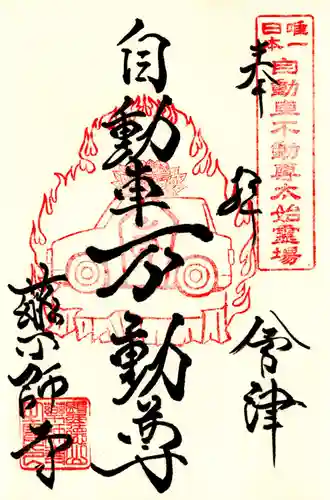 日本
唯一
自動車不動尊大始霊場
奉
拝
會津
自動車不動尊
薬師寺